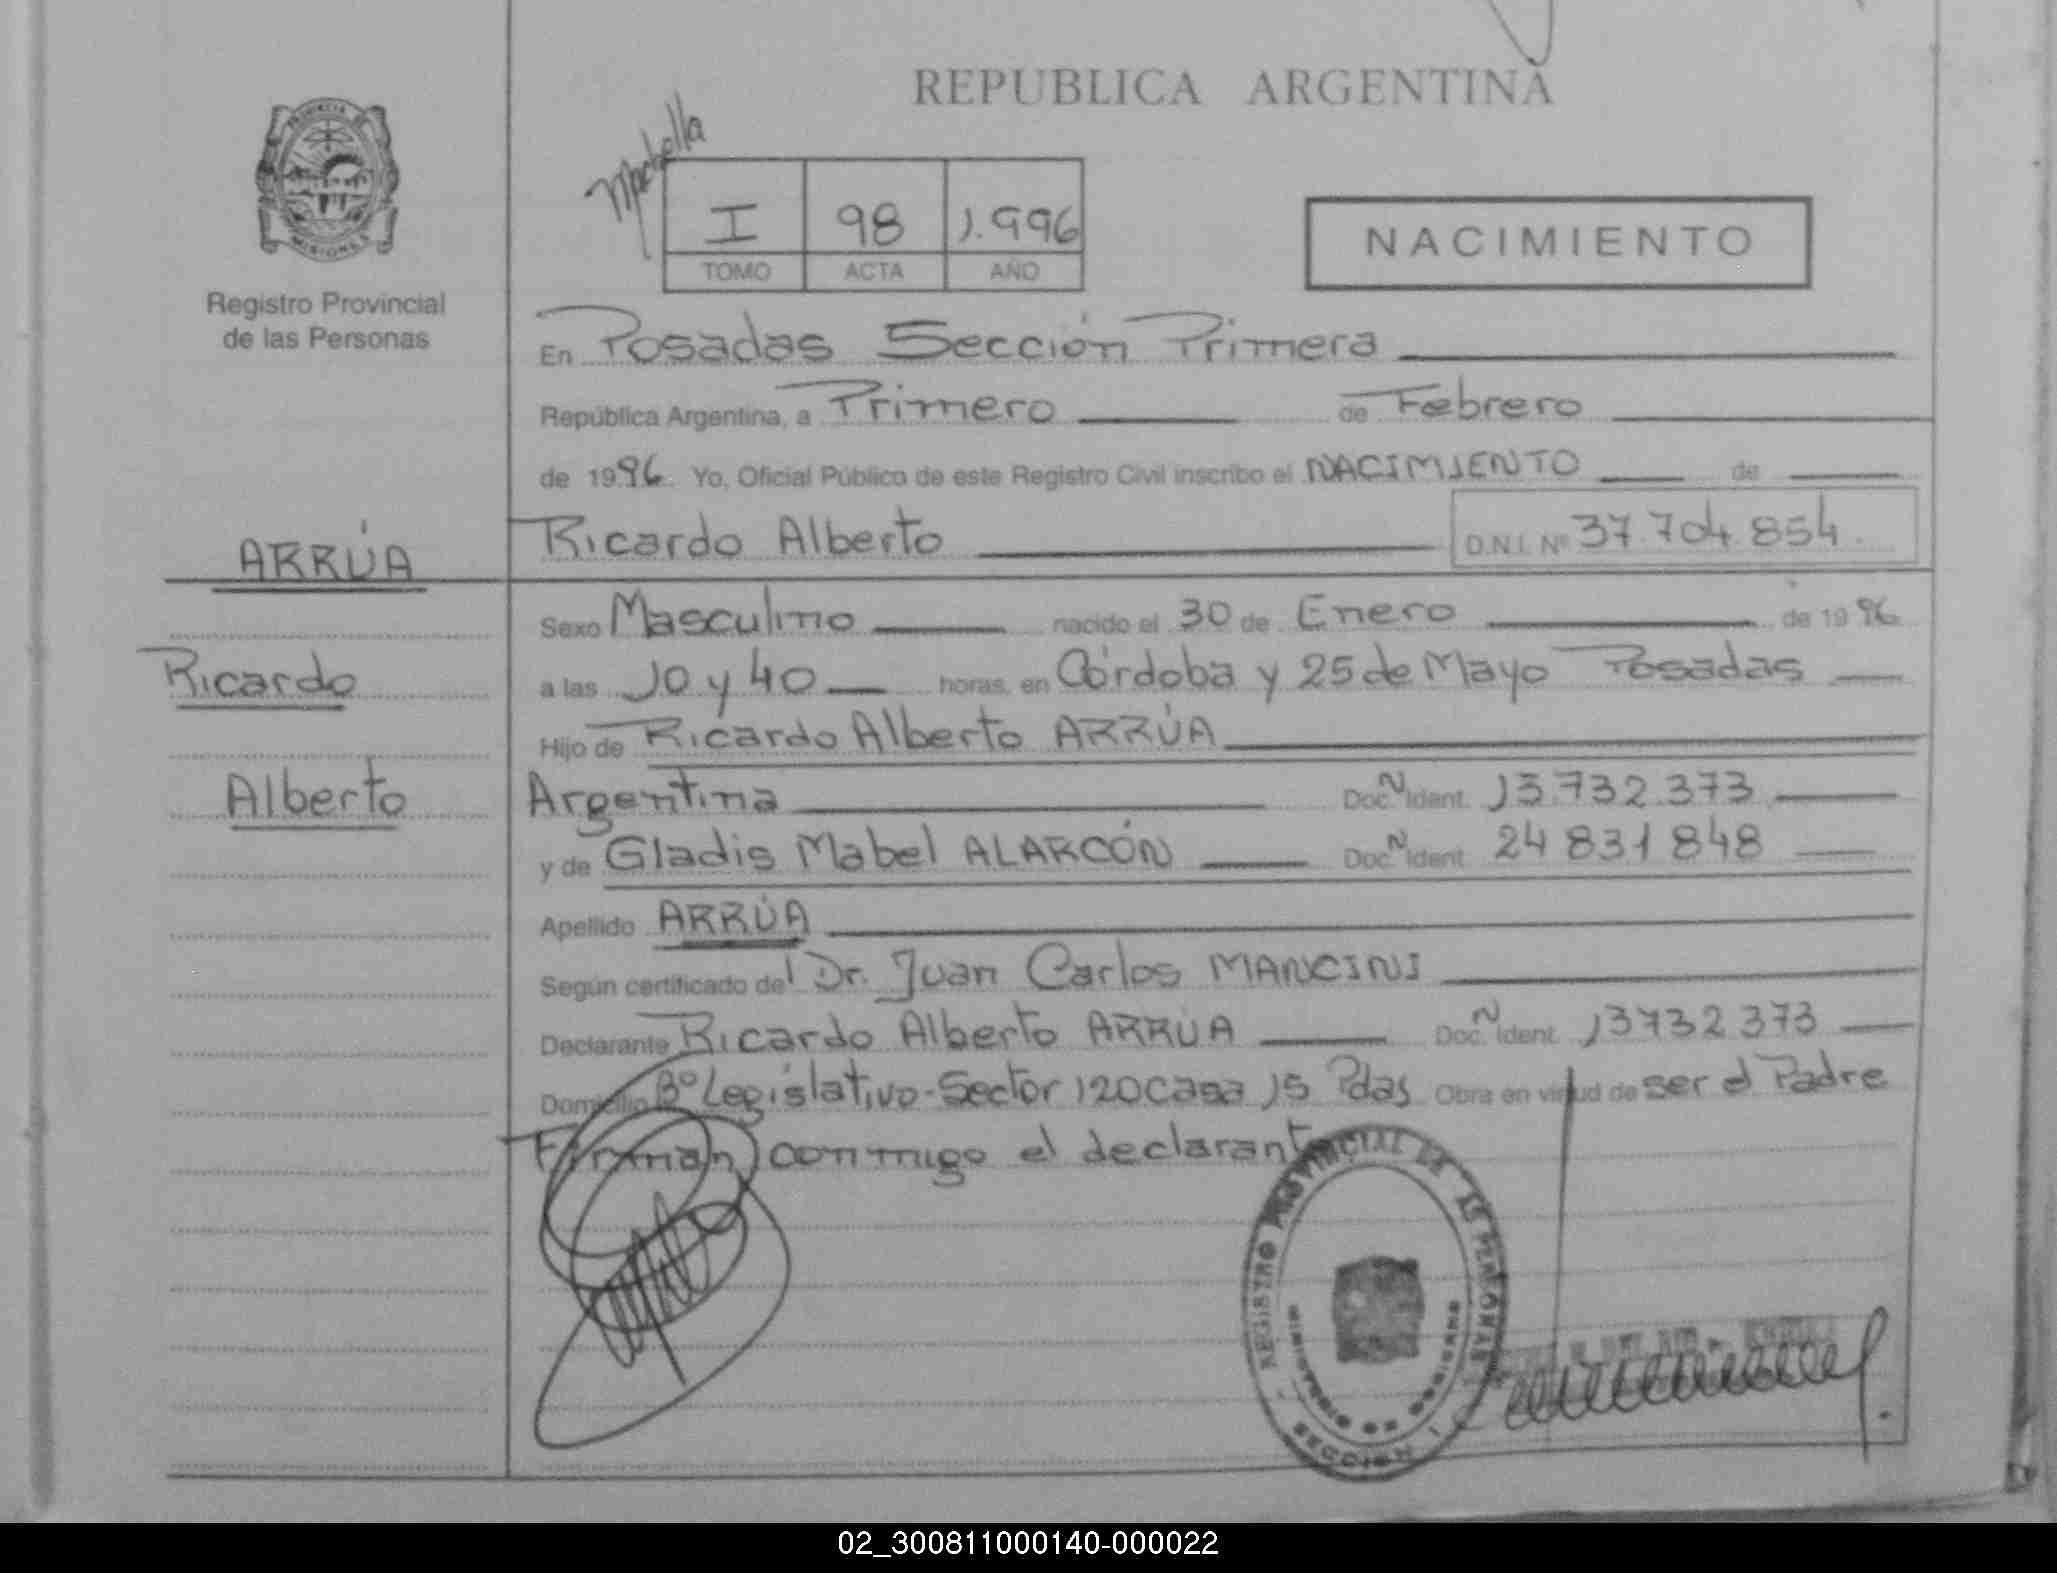 REPUBLICA ARGENTINA
PROVINCIA DE
MISIONES
Registro Provincial
de las Personas
I 98 1.996
TOMO ACTA AÑO
NACIMIENTO
En Posadas Sección Primera
República Argentina, a Primero de Febrero
de 1996. Yo, Oficial Público de este Registro Civil inscribo el NACIMIENTO de
ARRÚA Ricardo Alberto D.N.I. Nº 37.704.854.
Sexo Masculino nacido el 30 de Enero de 1996
Ricardo a las 10 y 40 horas, en Córdoba y 25 de Mayo Posadas
Hijo de Ricardo Alberto ARRÚA
Alberto Argentina Doc. N Ident. 13.732.373
y de Gladis Mabel ALARCÓN Doc. N Ident. 24 831 848
Apellido ARRÚA
Según certificado del Dr. Juan Carlos MANCINI
Declarante Ricardo Alberto ARRÚA Doc. N Ident. 13732 373
Domicilio Bº Legislativo-Sector 120 casa 15 Pdas Obra en virtud de ser el Padre
Firman conmigo el declarante
REGISTRO PROVINCIAL DE LAS PERSONAS
MINISTERIO DE GOBIERNO
SECCION 1
02_300811000140-000022